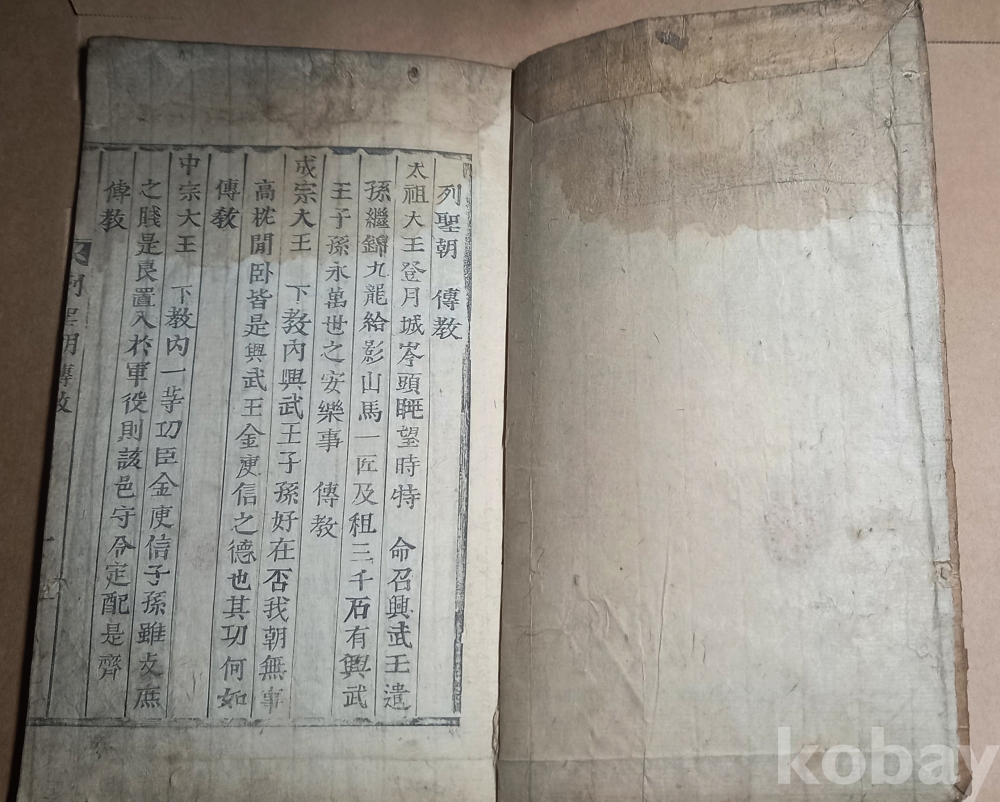 列聖朝 傳教
太祖大王登月城岑頭眄望時特 命召興武王遺
孫繼錦九龍給影山馬一匹及租三千石有興武
王子孫永萬世之安樂事 傳教
成宗大王 下教內興武王子孫好在否我朝無事
高枕閒卧皆是興武王金庾信之德也其功何如
傳教
中宗大王 下教內一等功臣金庾信子孫雖支庶
之賤是良置入於軍役則該邑守令定配是齊
傳教
列聖朝傳教
一
kobay